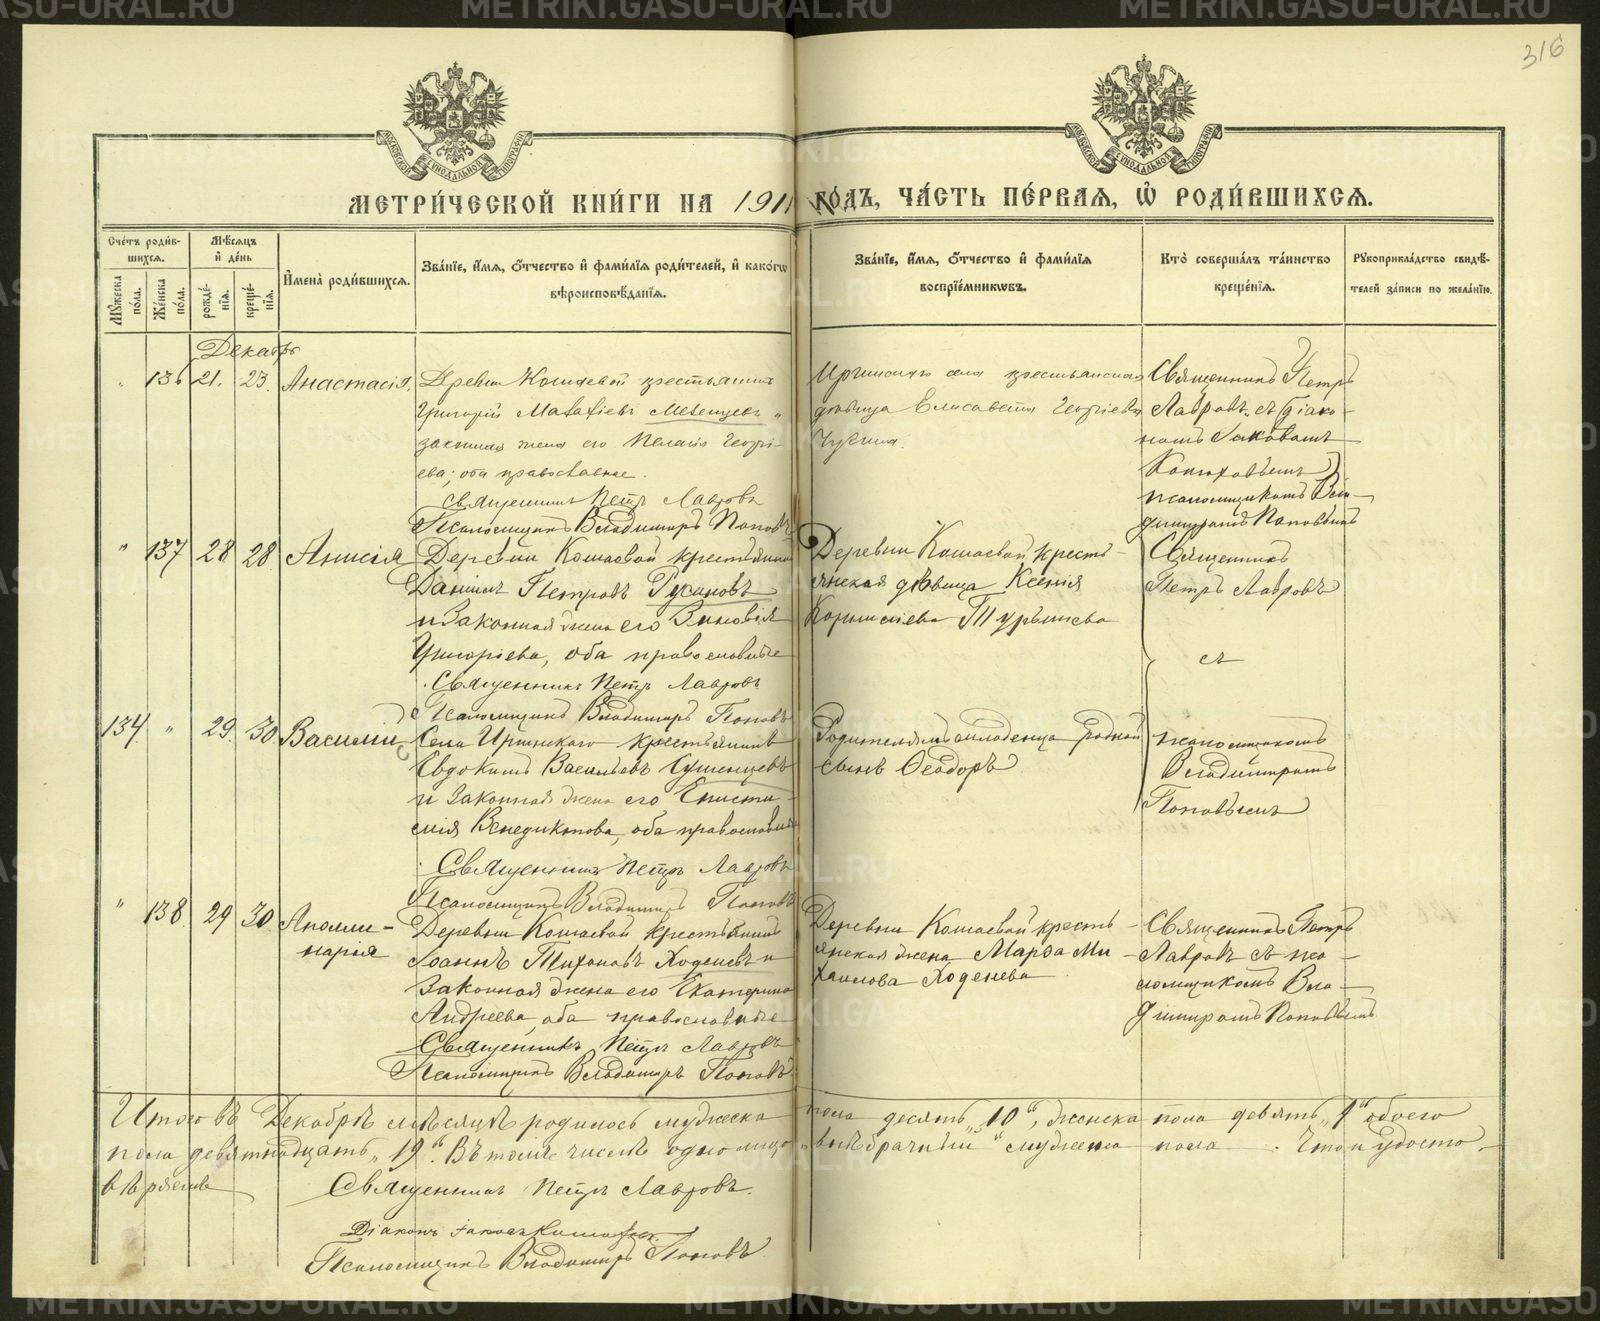 316
МЕТРИ́ЧЕСКОЙ КНИ́ГИ НА 1911 ГО́ДЪ, ЧА́СТЬ ПЕ́РВАЯ, Ѡ҆ РОДИ́ВШИХСѦ.
Сче́тъ роди́вшихсѧ.
Мѣ́сѧцъ и҆ де́нь
И҆мена̀ роди́вшихсѧ.
Зва́нїе, и҆́мѧ, ѻ҆́тчество и҆ фами́лїѧ роди́телей, и҆ како́гѡ
вѣроисповѣ́данїѧ.
Зва́нїе, и҆́мѧ, ѻ҆́тчество и҆ фами́лїѧ
воспрїе́мникѡвъ.
Кто̀ соверша́лъ та́инство
креще́нїѧ.
Рꙋкоприкла́дство свидѣ́-
телей за́писи по жела́нїю.
Мꙋ́жеска по́ла.
Же́нска по́ла.
рожде́нїѧ.
креще́нїѧ.
Декабрь
" 136 21. 23. Анастасія.
Деревни Кошаевой крестьянинъ
Григорій Матѳіевъ
законная жена его Пелагія Георгі-
ева; оба православные.
Священникъ Петръ Лавровъ
Псаломщикъ Владимиръ Поповъ
Иргинскаго села крестьянская
дѣвица Елисавета Георгіева
Священникъ Петръ
Лавровъ съ діако-
номъ Іаковомъ
псаломщикомъ Вла-
димиромъ Поповымъ
" 137 28 28 Анисія
Деревни Кошаевой крестьянинъ
Даніилъ Петровъ Русиновъ
и законная жена его Зиновія
Григоріева, оба православные
Священникъ Петръ Лавровъ
Псаломщикъ Владимиръ Поповъ
Деревни Кошаевой кресть-
янская дѣвица Ксенія
Священникъ
Петръ Лавровъ
съ
псаломщикомъ
Владимиромъ
Поповымъ
134. " 29. 30 Василій
Села Иргинскаго крестьянинъ
Евдокимъ Васильевъ
и законная жена его Еписти-
мія Венедиктова, оба православные
Священникъ Петръ Лавровъ
Псаломщикъ Владимиръ Поповъ
Родителямъ младенца родной
сынъ Ѳеодоръ
" 138 29 30 Аполли-
нарія
Деревни Кошаевой крестьянинъ
Іоаннъ Тихоновъ Ходеневъ и
законная жена его Екатерина
Андреева, оба православные
Священникъ Петръ Лавровъ
Псаломщикъ Владимиръ Поповъ
Деревни Кошаевой кресть-
янская жена Марѳа Ми-
хаилова Ходенева
Священникъ Петръ
Лавровъ съ пса-
ломщикомъ Вла-
димиромъ Поповымъ
Итого въ Декабрѣ мѣсяцѣ родилось мужеска пола десять „10“, женска пола девять „9“ обоего
пола девятнадцать „19“. Въ томъ числѣ одно лицо „внѣбрачный“ мужеска пола. Что и удосто-
вѣряемъ
Священникъ Петръ Лавровъ.
Діаконъ Іаковъ
Псаломщикъ Владимиръ Поповъ
METRIKI.GASU-URAL.RU